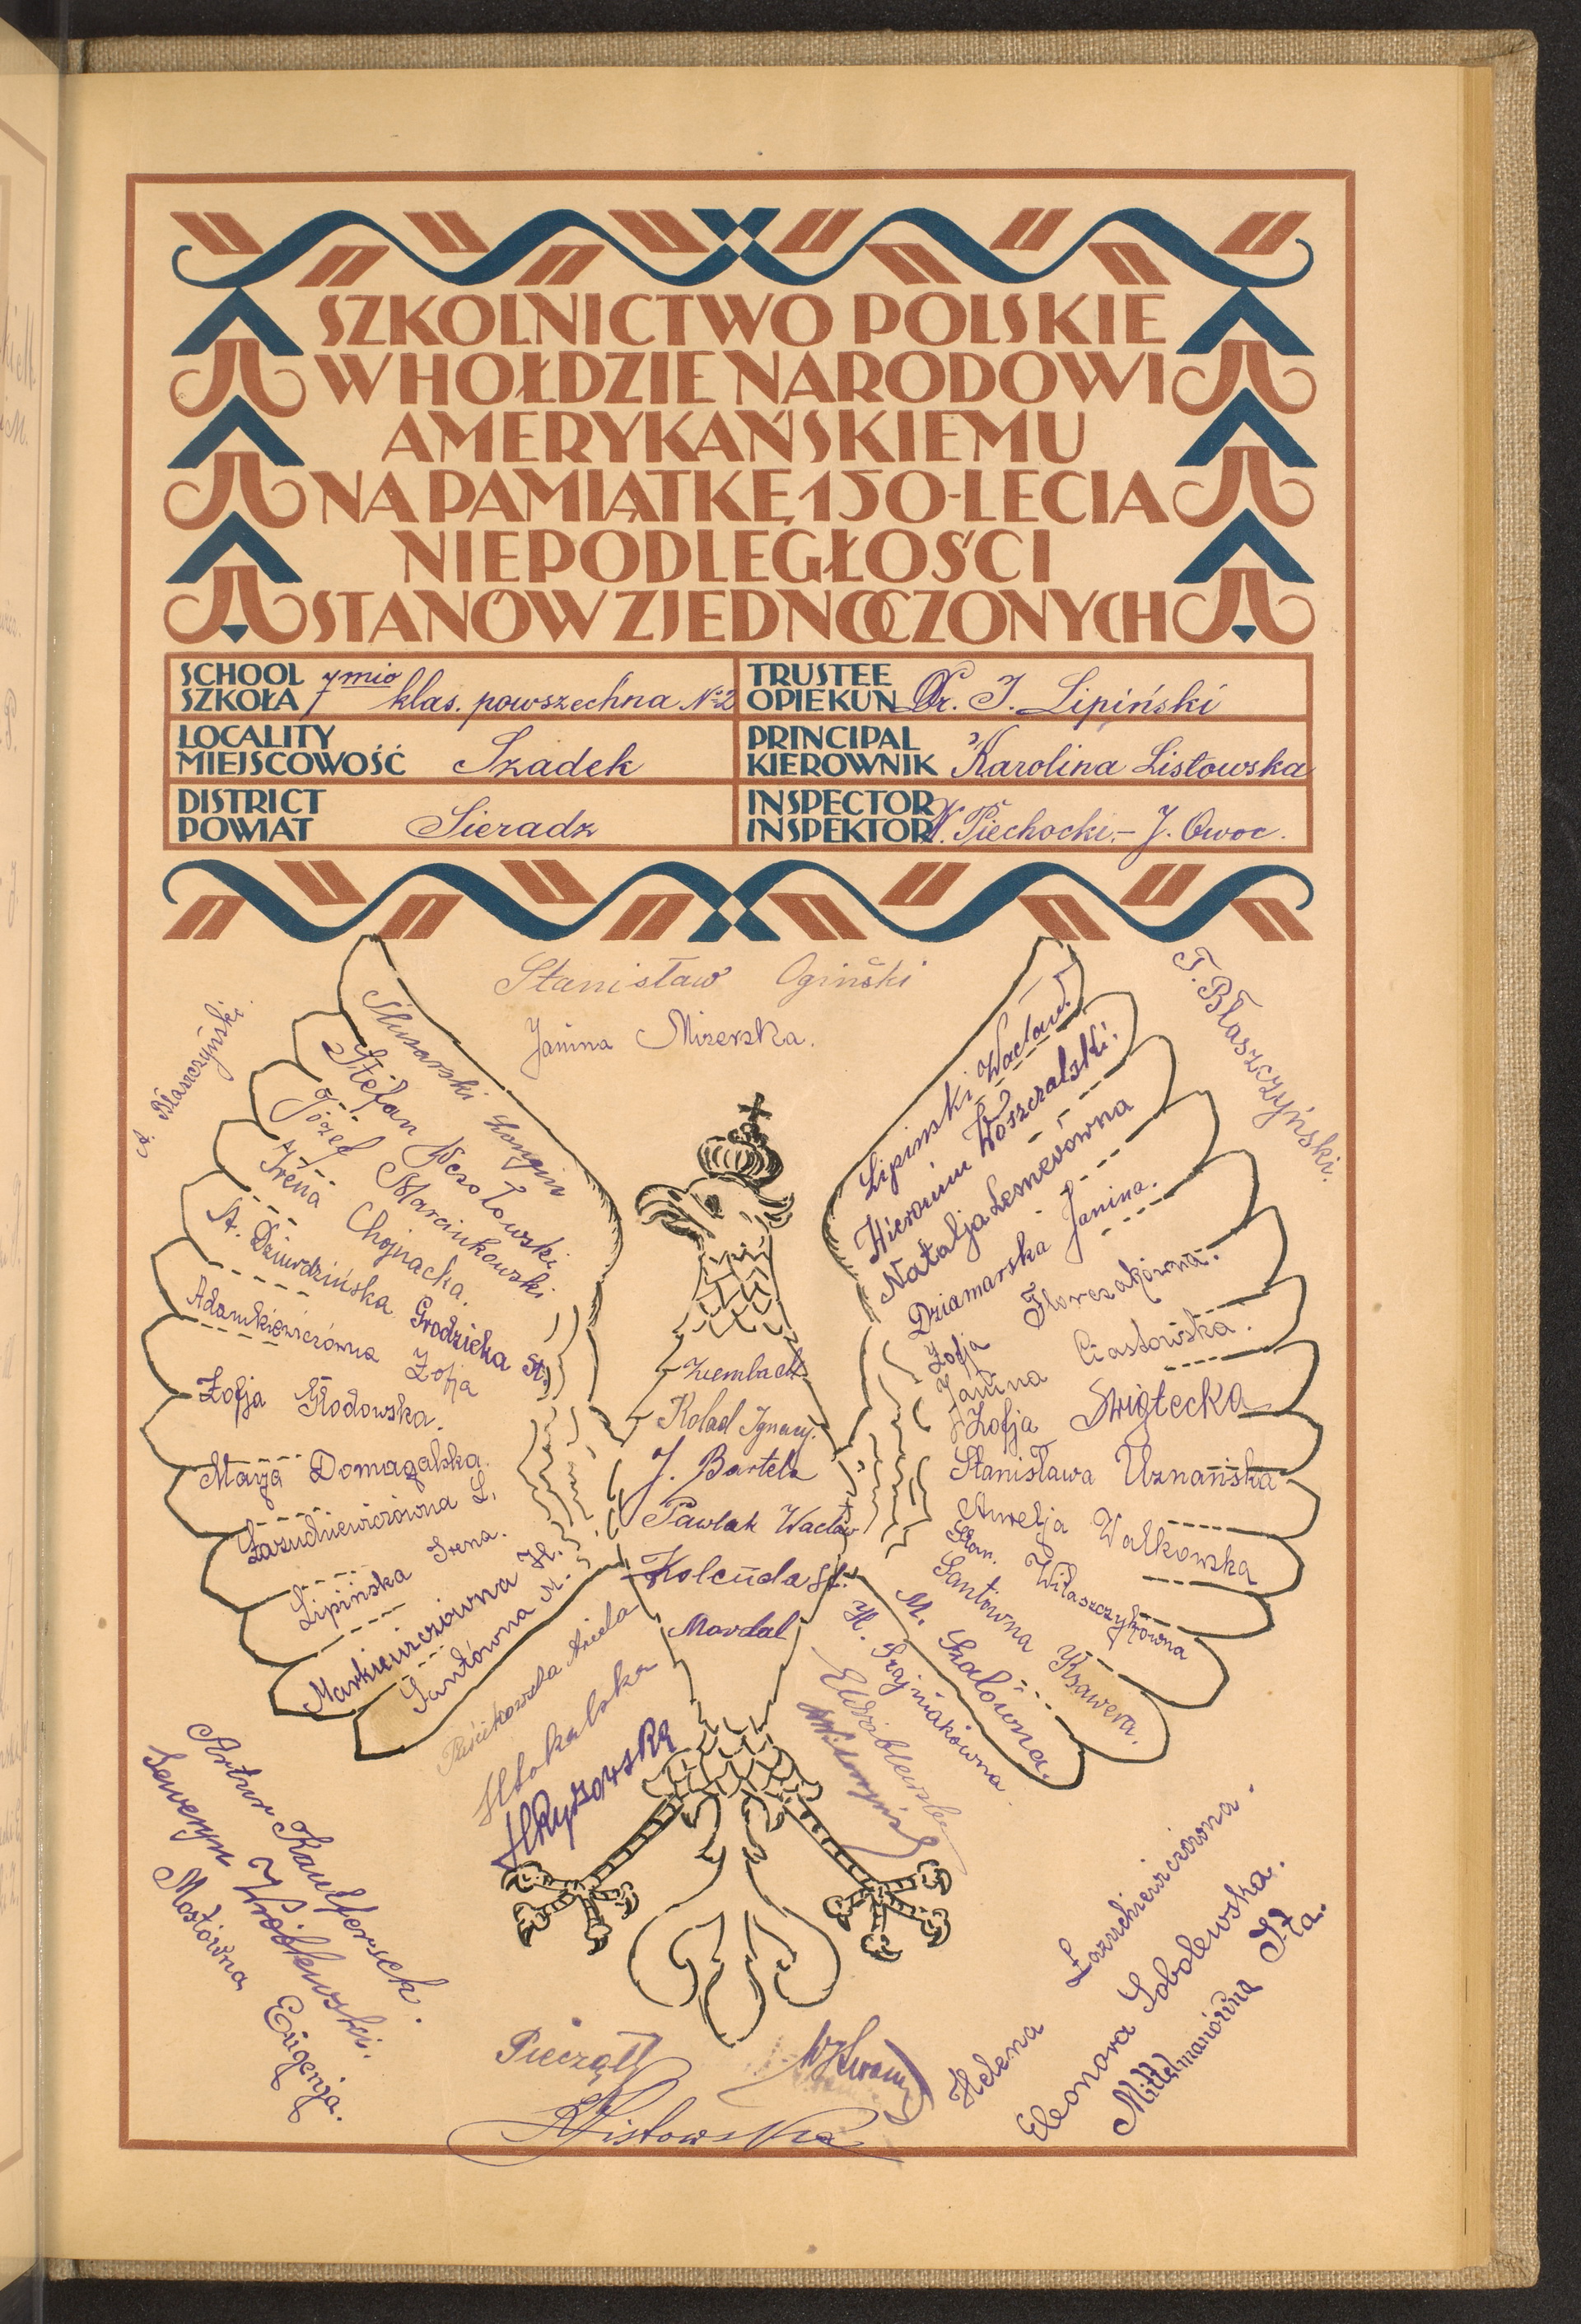 SZKOLNICTWO POLSKIE
W HOŁDZIE NARODOWI
AMERYKAŃSKIEMU
NA PAMIĄTKĘ 150-LECIA
NIEPODLEGŁOŚCI
STANÓW ZJEDNOCZONYCH
SCHOOL
SZKOŁA 7 mio klas. powszechna № 2
TRUSTEE
OPIEKUN Dr. J. Lipiński
LOCALITY
MIEJSCOWOŚĆ Szadek
PRINCIPAL
KIEROWNIK Karolina Listowska
DISTRICT
POWIAT Sieradz
INSPECTOR
INSPEKTOR W. Piechocki. - J. Owoc.
Stanisław Ogiński
Janina Mizerska.
Błaszczyński.
T. Błaszczyński.
Ślusarski Longin
Stefan Wczołowski
Józef Marcinkowski
Irena Chojnacka.
St. Dziurdzińska
Grodzicka St.
Adamkiewiczówna Zofja
Zofja Głodowska.
Marja Domagalska.
Łazuchiewiczówna L.
Lipińska Irena.
Markiewiczówna H.
Santówna M.
Lipinski Wacław.
Hieronim Woszczalski.
Natalja Lesnerówna
Dziamarska Janina.
Zofja Florczakówna.
Janina Ciastowska.
Zofja Swiątecka
Stanisława Uznańska
Aurelja Walkowska
Stan. Witaszczykówna
Santówna Ksawera.
M. Szalówna.
H. Szajniakówna.
Ziembach
Kolad Ignacy.
J. Bartela
Pawlak Wacław
Kolenda St.
Mardal
Aniela
HRyszowska
EWróblewska
Artur Kaulfersch.
Seweryn Wróblewski.
Mostówna Eugenja.
Helena Łazuchiewiczówna.
Eleonora Sobolewska.
Mittelmanówna Ita.
Pieczęć
KListowska